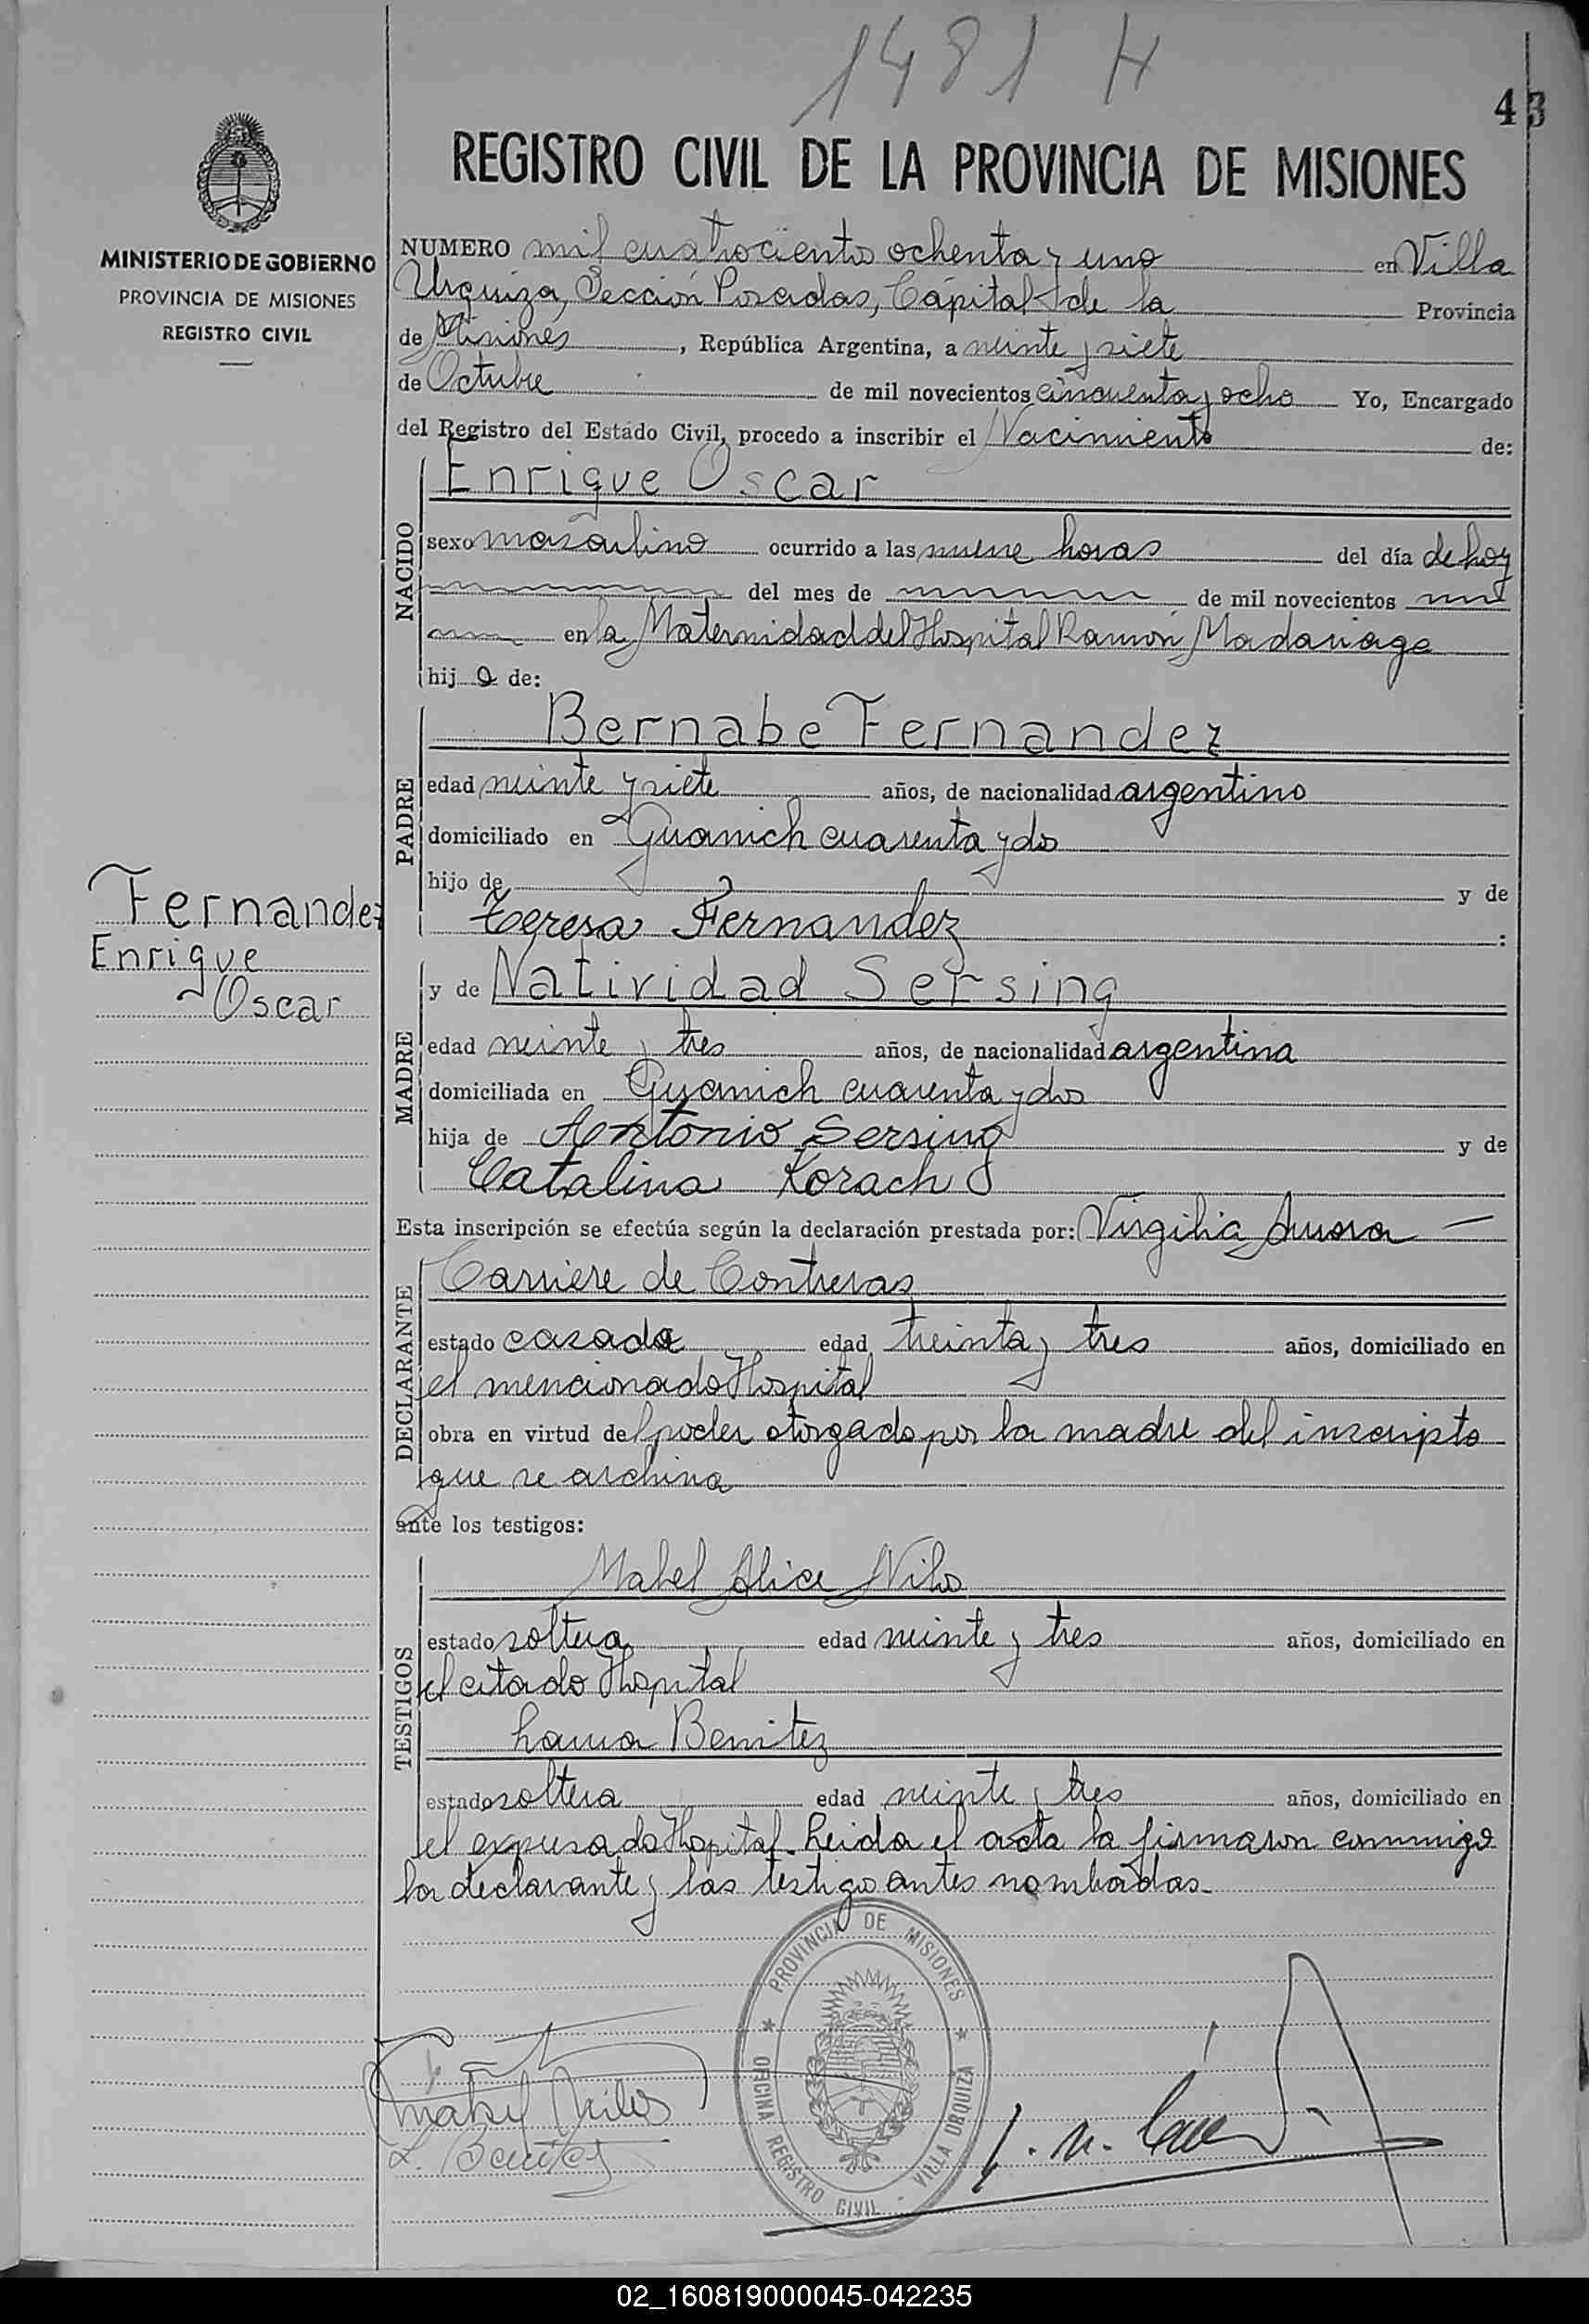 1481 H
43
REGISTRO CIVIL DE LA PROVINCIA DE MISIONES
MINISTERIO DE GOBIERNO
PROVINCIA DE MISIONES
REGISTRO CIVIL
NUMERO mil cuatrociento ochenta y uno en Villa
Urquiza, Sección Posadas, Capital de la Provincia
de Misiones, República Argentina, a veinte y siete
de Octubre de mil novecientos cincuenta y ocho Yo, Encargado
del Registro del Estado Civil, procedo a inscribir el Nacimiento de:
NACIDO
Enrique Oscar
sexo masculino ocurrido a las nueve horas del día de hoy
del mes de de mil novecientos
en la Maternidad del Hospital Ramón Madariaga
hijo de:
PADRE
Bernabe Fernandez
edad veinte y siete años, de nacionalidad argentino
domiciliado en cuarenta y dos
hijo de y de
Teresa Fernandez :
Fernandez
Enrique
Oscar
MADRE
y de Natividad Sersing
edad veinte y tres años, de nacionalidad argentina
domiciliada en cuarenta y dos
hija de Antonio Sersing y de
Catalina Korach
Esta inscripción se efectúa según la declaración prestada por: Virgilia
DECLARANTE
Carriere de Contreras
estado casada edad treinta y tres años, domiciliado en
el mencionado Hospital
obra en virtud del poder otorgado por la madre del inscripto
que se archiva
ante los testigos:
TESTIGOS
Mabel Alice Nilos
estado soltera edad veinte y tres años, domiciliado en
el citado Hospital
Laura Benitez
estado soltera edad veinte y tres años, domiciliado en
el expresado Hospital. Leida el acta la firmaron conmigo
la declarante y las testigo antes nombradas.
PROVINCIA DE MISIONES
OFICINA REGISTRO CIVIL - VILLA URQUIZA
Mabel Nilos
L. Benitez
02_160819000045-042235